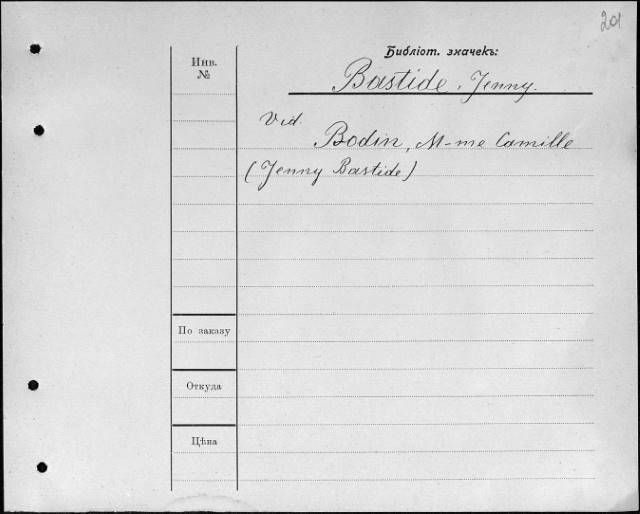 201
Библіот. значекъ:
Инв.
№
Bastide, Jenny.
Vid.
Bodin, M-me Camille
(Jenny Bastide)
По заказу
Откуда
Цѣна